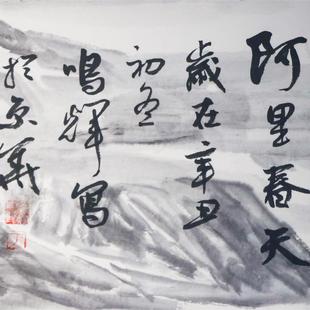 阿里春天
歲在辛丑
初冬
鳴輝寫
於京華